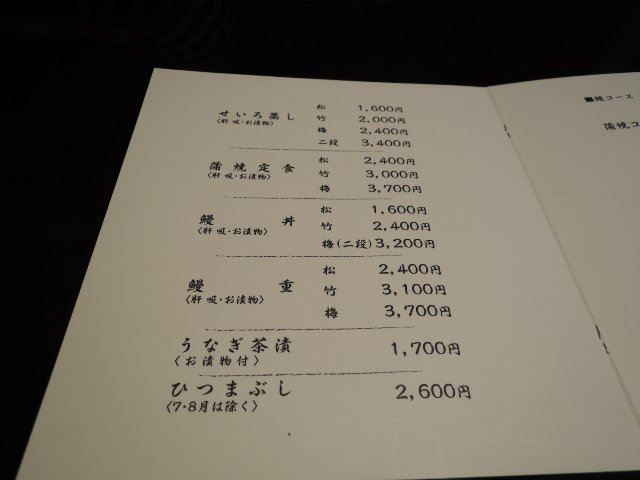 せいろ蒸し 松 1,600円
〈肝吸・お漬物〉 竹 2,000円
梅 2,400円
二段 3,400円
蒲焼定食 松 2,400円
〈肝吸・お漬物〉 竹 3,000円
梅 3,700円
鰻丼 松 1,600円
〈肝吸・お漬物〉 竹 2,400円
梅(二段) 3,200円
鰻重 松 2,400円
〈肝吸・お漬物〉 竹 3,100円
梅 3,700円
うなぎ茶漬 1,700円
〈お漬物付〉
ひつまぶし 2,600円
〈7・8月は除く〉
コース
蒲焼コ